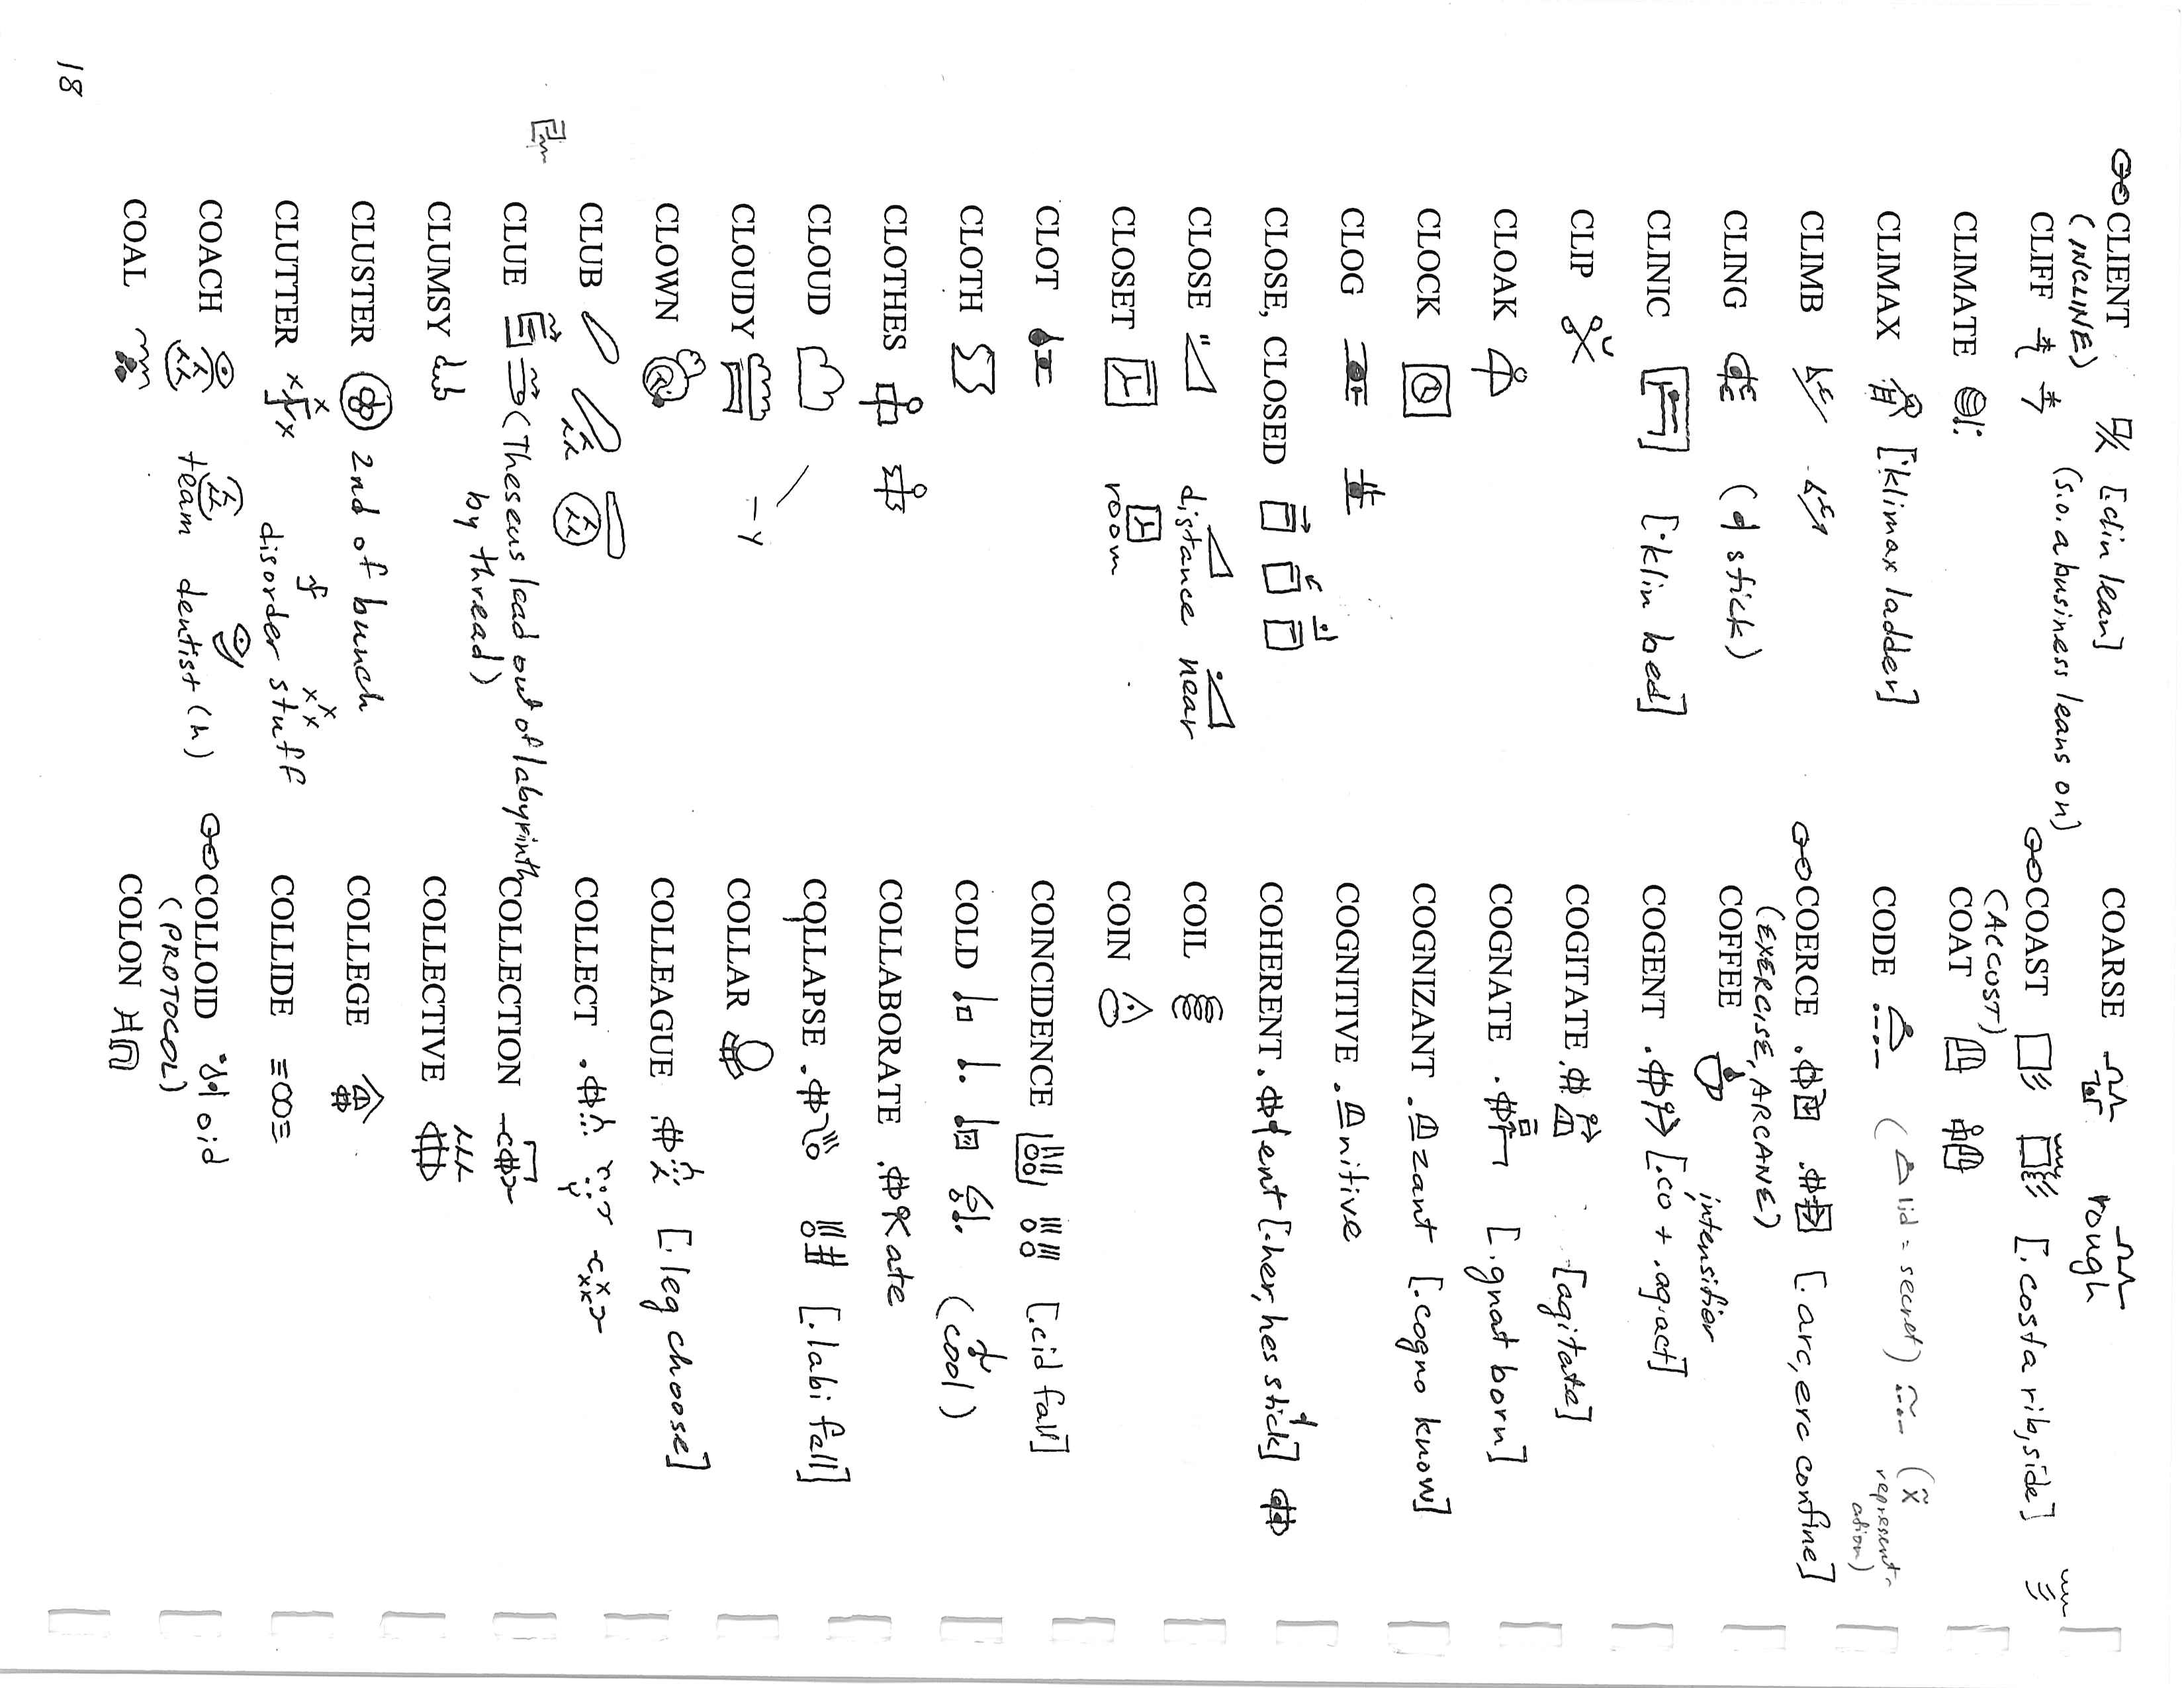 CLIENT [.clin lean]
(INCLINE) (s.o. a business leans on)
CLIFF
CLIMATE
CLIMAX [.klimax ladder]
CLIMB
CLING (stick)
CLINIC [.klin bed]
CLIP
CLOAK
CLOCK
CLOG
CLOSE, CLOSED
CLOSE distance near
CLOSET room
CLOT
CLOTH
CLOTHES
CLOUD
CLOUDY -y
CLOWN
CLUB
CLUE (Theseus lead out of labyrinth
by thread)
CLUMSY
CLUSTER 2nd of bunch
CLUTTER disorder stuff
COACH team dentist (h)
COAL
COARSE rough
COAST [.costa rib, side]
(ACCOST)
COAT
CODE (lid = secret) (x̃ represent-
ation)
COERCE [.arc, erc confine]
(EXERCISE, ARCANE)
COFFEE intensifier
COGENT [.co + .ag, act]
COGITATE [agitate]
COGNATE [.gnat born]
COGNIZANT zant [.cogno know]
COGNITIVE nitive
COHERENT ent [.her, hes stick]
COIL
COIN
COINCIDENCE [.cid fall]
COLD (cool)
COLLABORATE ate
COLLAPSE [.labi fall]
COLLAR
COLLEAGUE [.leg choose]
COLLECT
COLLECTION
COLLECTIVE
COLLEGE
COLLIDE
COLLOID oid
(PROTOCOL)
COLON
18